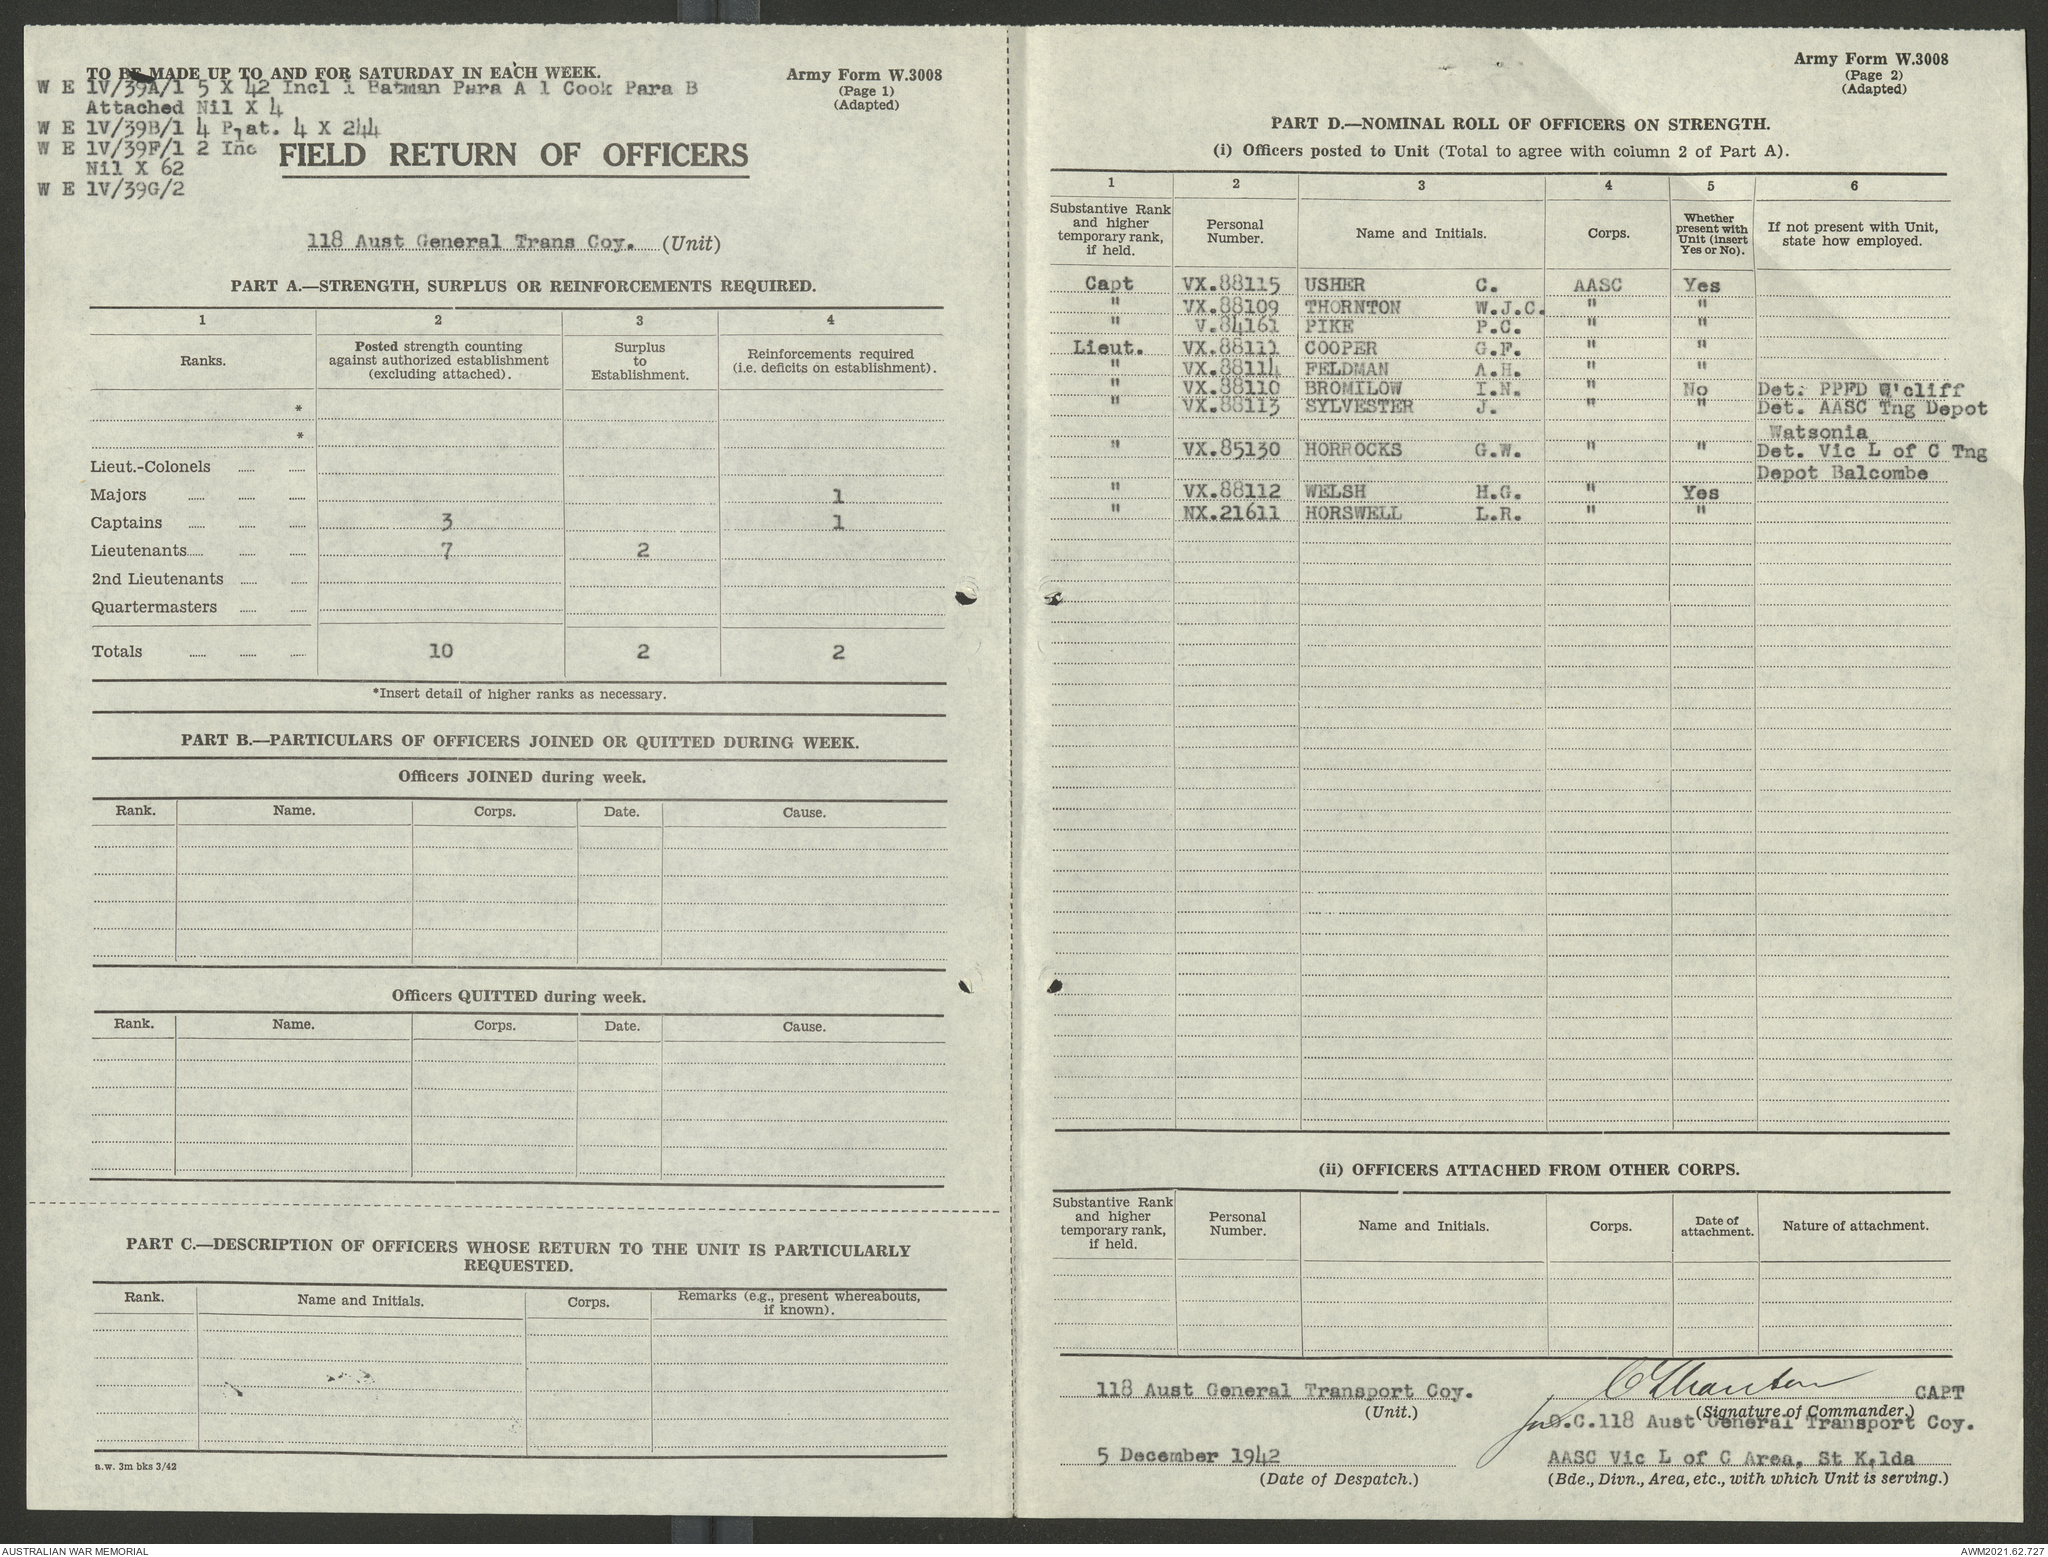 TO BE MADE UP TO AND FOR SATURDAY IN EACH WEEK.
Army Form W.3008
(Page 1)
(Adapted)
W E 1V/39A/1 5 X 42 Incl 1 Batman Para A 1 Cook Para B
Attached Nil X 4
W E 1V/39B/1 4 Plat. 4 X 244
W E 1V/39F/1 2 Inc
Nil X 62
W E 1V/39G/2
FIELD RETURN OF OFFICERS
118 Aust General Trans Coy. (Unit)
PART A.—STRENGTH, SURPLUS OR REINFORCEMENTS REQUIRED.
1 2 3 4
Ranks. Posted strength counting against authorized establishment (excluding attached). Surplus to Establishment. Reinforcements required (i.e. deficits on establishment).
*
*
Lieut.-Colonels
Majors 1
Captains 3 1
Lieutenants 7 2
2nd Lieutenants
Quartermasters
Totals 10 2 2
*Insert detail of higher ranks as necessary.
PART B.—PARTICULARS OF OFFICERS JOINED OR QUITTED DURING WEEK.
Officers JOINED during week.
Rank. Name. Corps. Date. Cause.
Officers QUITTED during week.
Rank. Name. Corps. Date. Cause.
PART C.—DESCRIPTION OF OFFICERS WHOSE RETURN TO THE UNIT IS PARTICULARLY
REQUESTED.
Rank. Name and Initials. Corps. Remarks (e.g., present whereabouts, if known).
a.w. 3m bks 3/42
Army Form W.3008
(Page 2)
(Adapted)
PART D.—NOMINAL ROLL OF OFFICERS ON STRENGTH.
(i) Officers posted to Unit (Total to agree with column 2 of Part A).
1 2 3 4 5 6
Substantive Rank and higher temporary rank, if held. Personal Number. Name and Initials. Corps. Whether present with Unit (insert Yes or No). If not present with Unit, state how employed.
Capt VX.88115 USHER C. AASC Yes
" VX.88109 THORNTON W.J.C. " "
" V.84161 PIKE P.C. " "
Lieut. VX.88111 COOPER G.F. " "
" VX.88114 FELDMAN A.H. " "
" VX.88110 BROMILOW I.N. " No Det. PPFD Q'cliff
" VX.88113 SYLVESTER J. " " Det. AASC Tng Depot
Watsonia
" VX.85130 HORROCKS G.W. " " Det. Vic L of C Tng
Depot Balcombe
" VX.88112 WELSH H.G. " Yes
" NX.21611 HORSWELL L.R. " "
(ii) OFFICERS ATTACHED FROM OTHER CORPS.
Substantive Rank and higher temporary rank, if held. Personal Number. Name and Initials. Corps. Date of attachment. Nature of attachment.
118 Aust General Transport Coy. CAPT
(Unit.) (Signature of Commander.)
for O.C.118 Aust General Transport Coy.
5 December 1942 AASC Vic L of C Area, St Kilda
(Date of Despatch.) (Bde., Divn., Area, etc., with which Unit is serving.)
AUSTRALIAN WAR MEMORIAL AWM2021.62.727